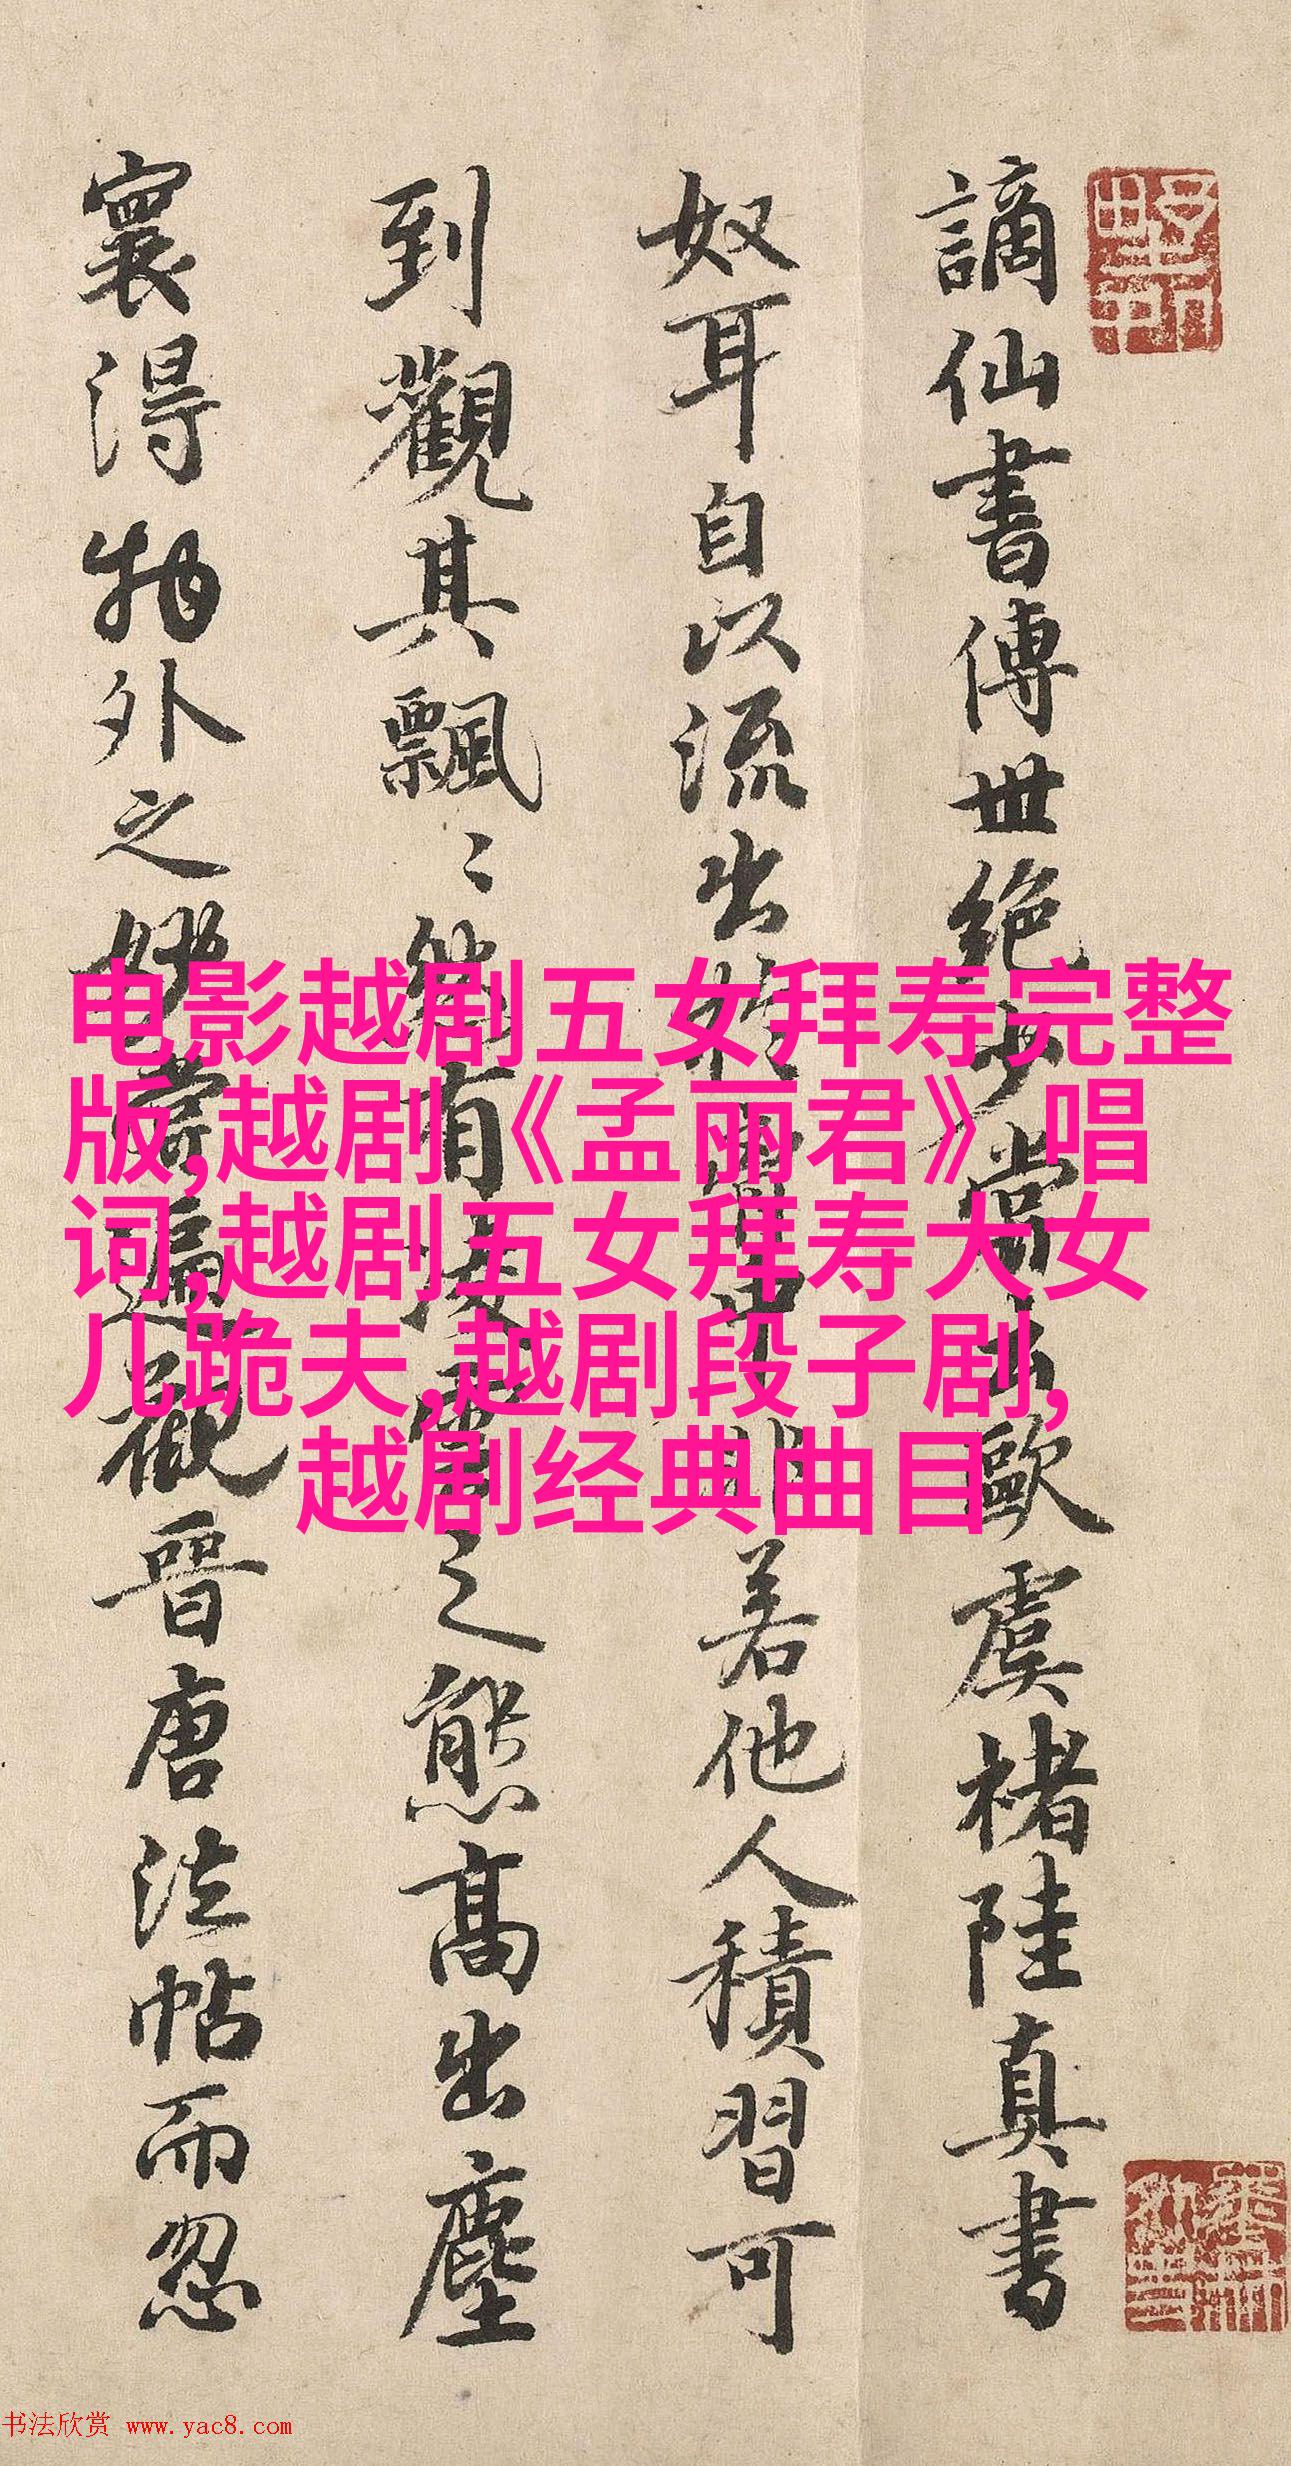 謫仙書傳世絕少嘗云歐虞褚陸真書
奴耳自以流出於胷中非若他人積習可
到觀其飄〻然有凌雲之態高出塵
寰得物外之妙嘗遍觀晉唐法帖而忽
电影越剧五女拜寿完整
版,越剧《孟丽君》唱
词,越剧五女拜寿大女
儿跪夫,越剧段子剧,
越剧经典曲目
书法欣赏 www.yac8.com